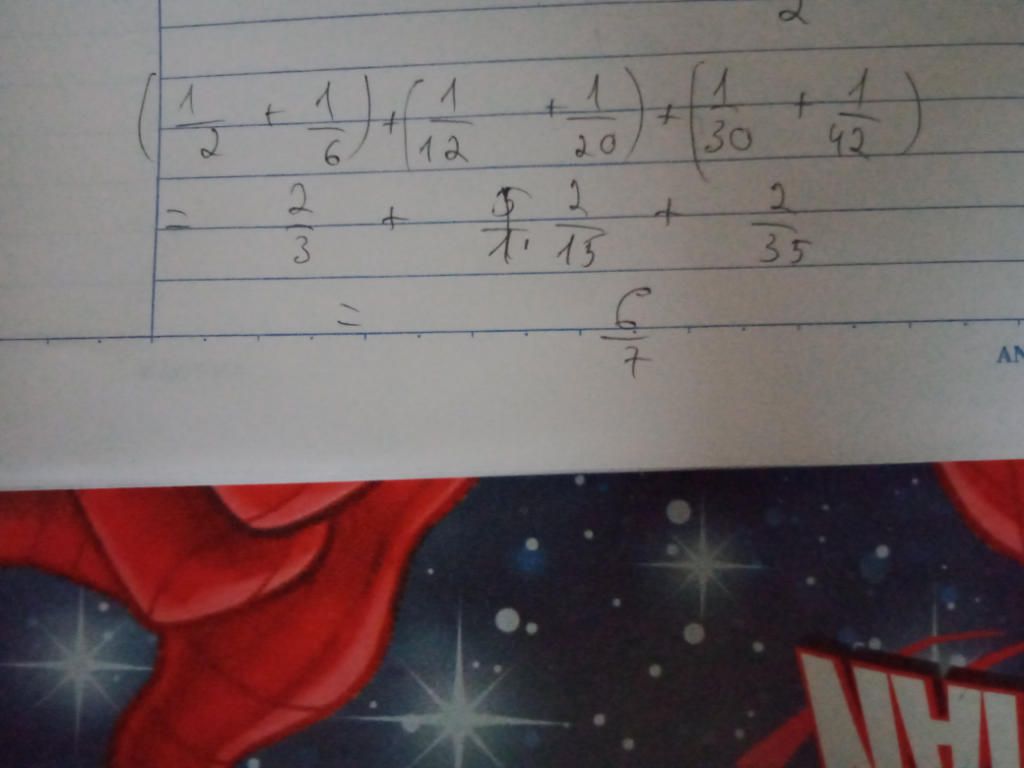 2
(1/2 + 1/6) + (1/12 + 1/20) + (1/30 + 1/42)
= 2/3 + 2/15 + 2/35
= 6/7